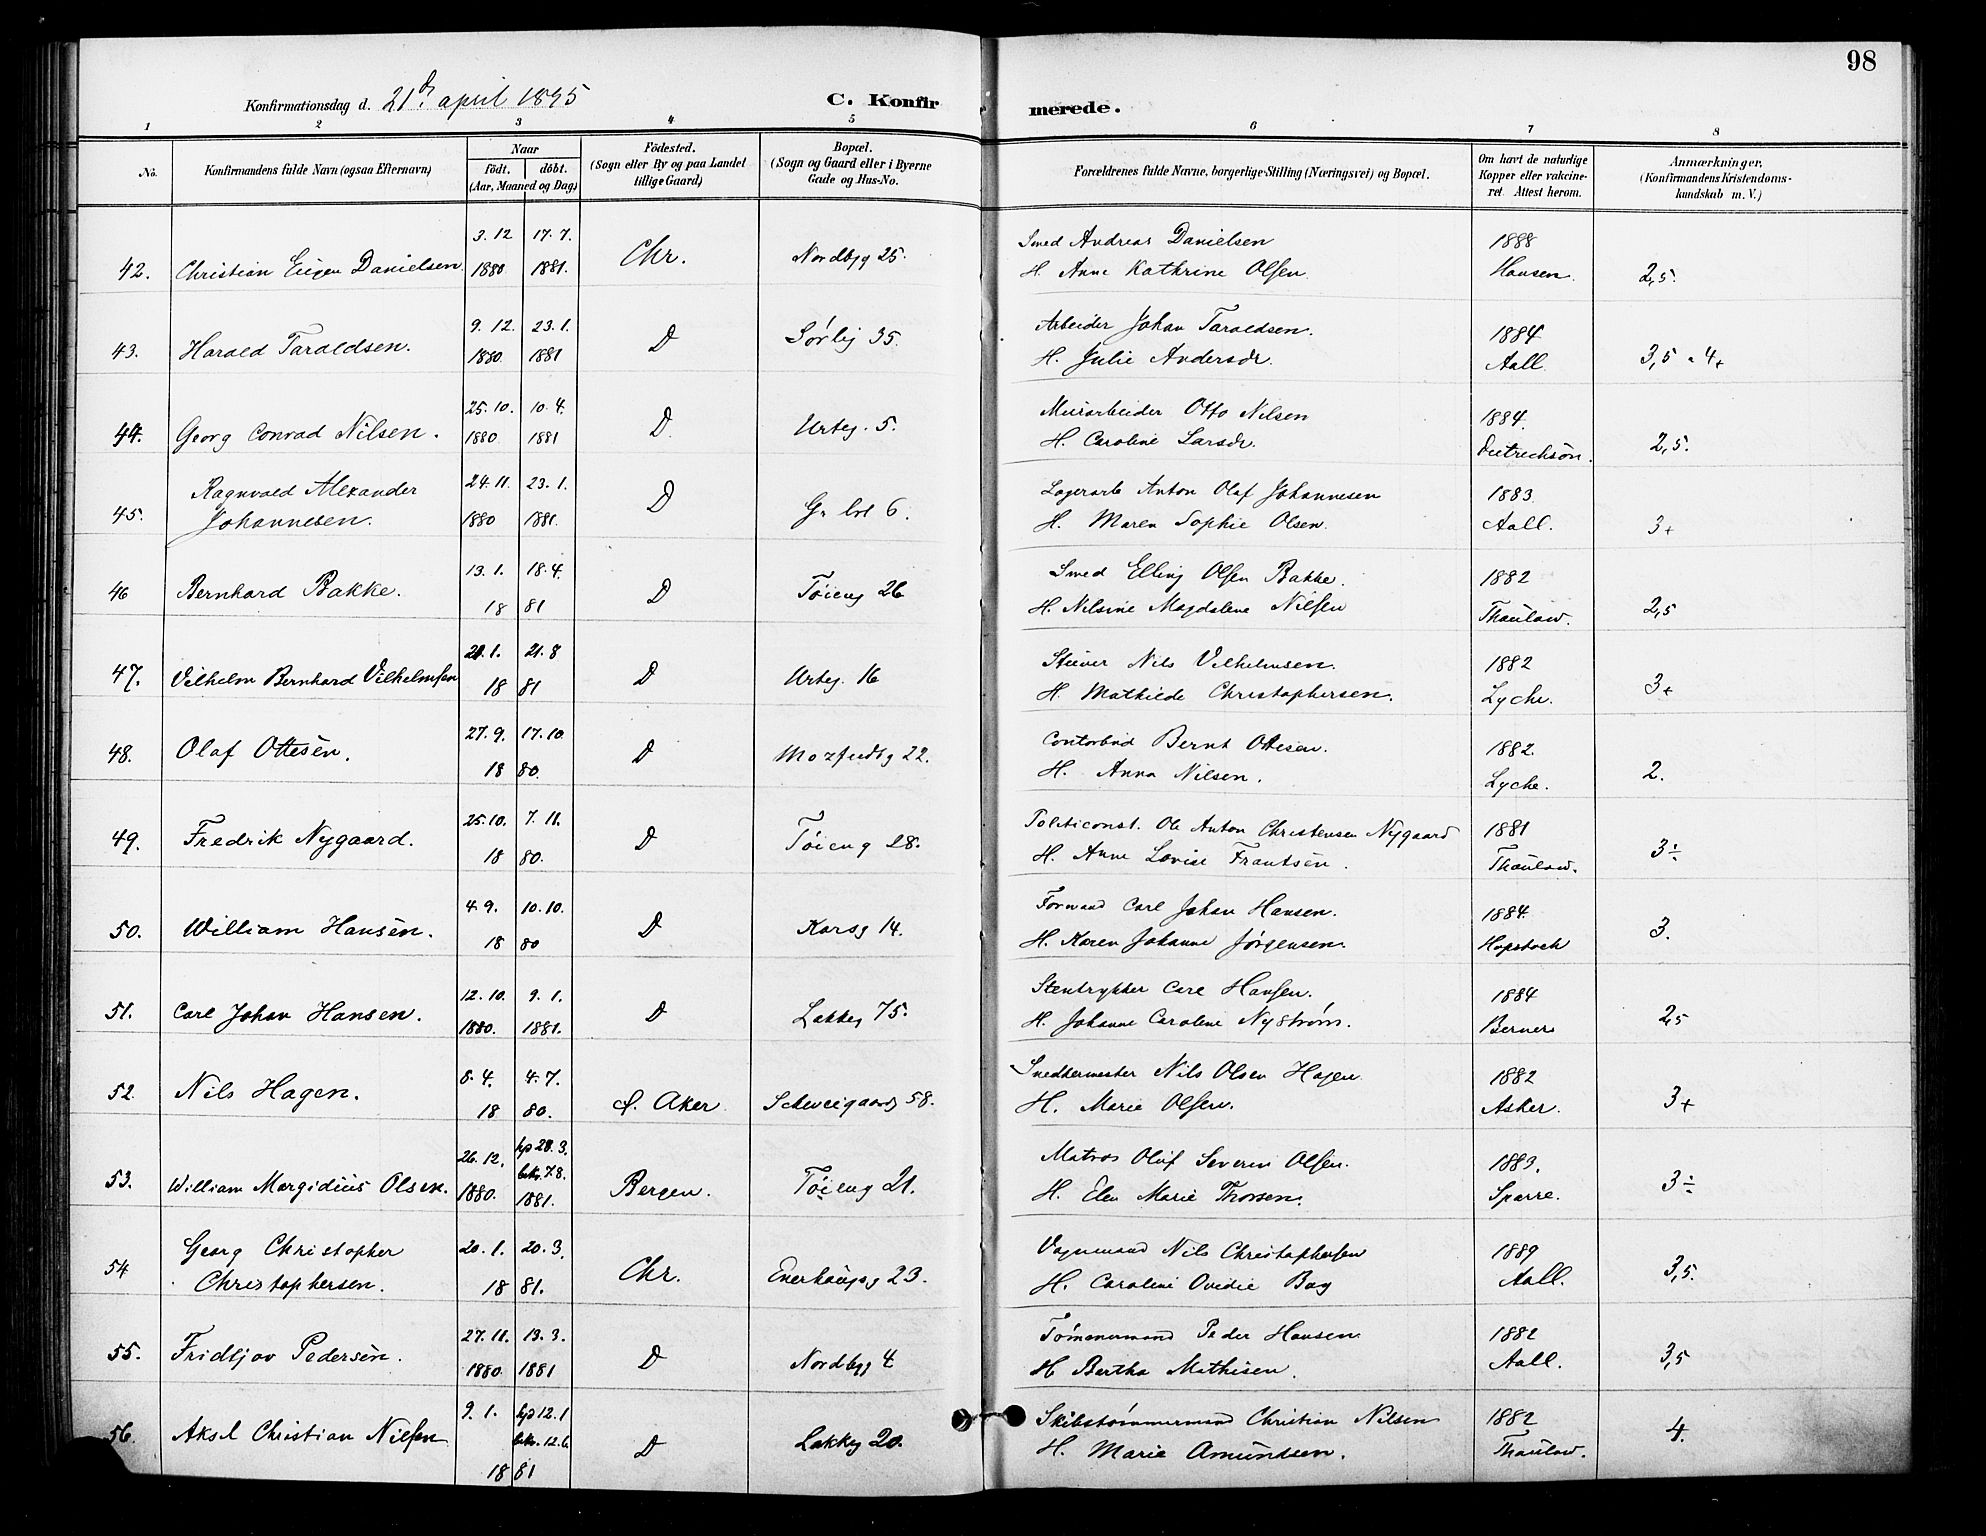 98
Konfirmationsdag d. 21de april 1895
C. Konfirmerede.
1 2 3 4 5 6 7 8
No. Konfirmandens fulde Navn (ogsaa Efternavn) Naar Födt. döbt. (Aar, Maaned og Dag) Födested. (Sogn eller By og paa Landet tillige Gaard) Bopæl. (Sogn og Gaard eller i Byerne Gade og Hus-No. Forældrenes fulde Navne, borgerlige Stilling (Næringsvei) og Bopæl. Om havt de naturlige Kopper eller vakcineret. Attest herom. Anmærkninger, (Konfirmandens Kristendomskundskab m. V.)
3.12 17.7. Smed Andreas Danielsen 1888
42. Christian Eugen Danielsen 1880 1881. Chr. Nordbyg 25. H. Anne Kathrine Olsen. Hansen. 2,5.
9.12. 23.1. Arbeider Johan Taraldsen. 1884
43. Harald Taraldsen. 1880 1881 D Sørlig 35. H. Julie Andersdr. Aall. 3,5 4+
25.10. 10.4. Murarbeider Otto Nilsen 1884.
44. Georg Conrad Nilsen. 1880 1881 D. Urteg. 5. H. Caroline Larsdr. Dietrichson. 2,5.
Ragnvald Alexander 24.11. 23.1. Lagerarb Anton Olaf Johannesen 1883.
45. Johannesen. 1880 1881. D Gr. brl 6. H. Maren Sophie Olsen. Aall. 3+
13.1. 18.4. Smed Elling Olsen Bakke. 1882
46 Bernhard Bakke. 18 81 D Tøieng 26 H. Nilsine Magdalene Nilsen Thaulow. 2,5
21.1. 21.8 Stuver Nils Vilhelmsen. 1882
47. Vilhelm Bernhard Vilhelmsen 18 81 D Urteg. 16 H. Mathilde Christophersen. Lyche. 3+
27.9. 17.10. Contorbud Bernt Ottesen. 1882.
48. Olaf Ottesen. 18 80. D 22. H. Anna Nilsen. Lyche. 2.
25.10. 7.11. Politiconst. Ole Anton Christensen Nygaard 1881
49. Fredrik Nygaard. 18 80. D Tøieng 28. H. Anne Lovise Frantsen. Thaulow. 3÷
4.9. 10.10. Formand Carl Johan Hansen. 1884.
50. William Hansen. 18 80 D Korsg 14. H. Karen Johanne Jørgensen. Hopstock 3.
12.10. 9.1. Stentrykker Carl Hansen. 1884
51. Carl Johan Hansen. 1880. 1881. D Lakkeg 75. H. Johanne Caroline Nystrøm. Berner 2,5
8.4. 4.7. Snedkermester Nils Olsen Hagen 1882
52. Nils Hagen. 18 80. Aker Schweigaards 58. H. Marie Olsen. Asker. 3+
26.12. hjd 28.3. bekr. 7.8. Matros Oluf Severin Olsen. 1883.
53. William Margidius Olsen. 1880. 1881. Bergen. Tøieng 21. H. Elen Marie Thorsen. Sparre. 3÷
Georg Christopher 20.1. 20.3. Vognmand Nils Christophersen 1889
54 Christophersen. 18 81. Chr. Enerhaugsg 23. H. Caroline Ovidie Bay Aall. 3,5.
27.11. 13.3. Tømmermand Peder Hansen 1882
55. Fridtjov Pedersen. 1880. 1881 D Nordbyg 4 H Bertha Mathisen. Aall. 3,5
9.1. hjd 12.1 bekr. 12.6. Skibstømmermand Christian Nilsen 1882
56. Aksel Christian Nilsen 18 81 D Lakkeg 20. H. Marie Amundsen. Thaulow. 4.